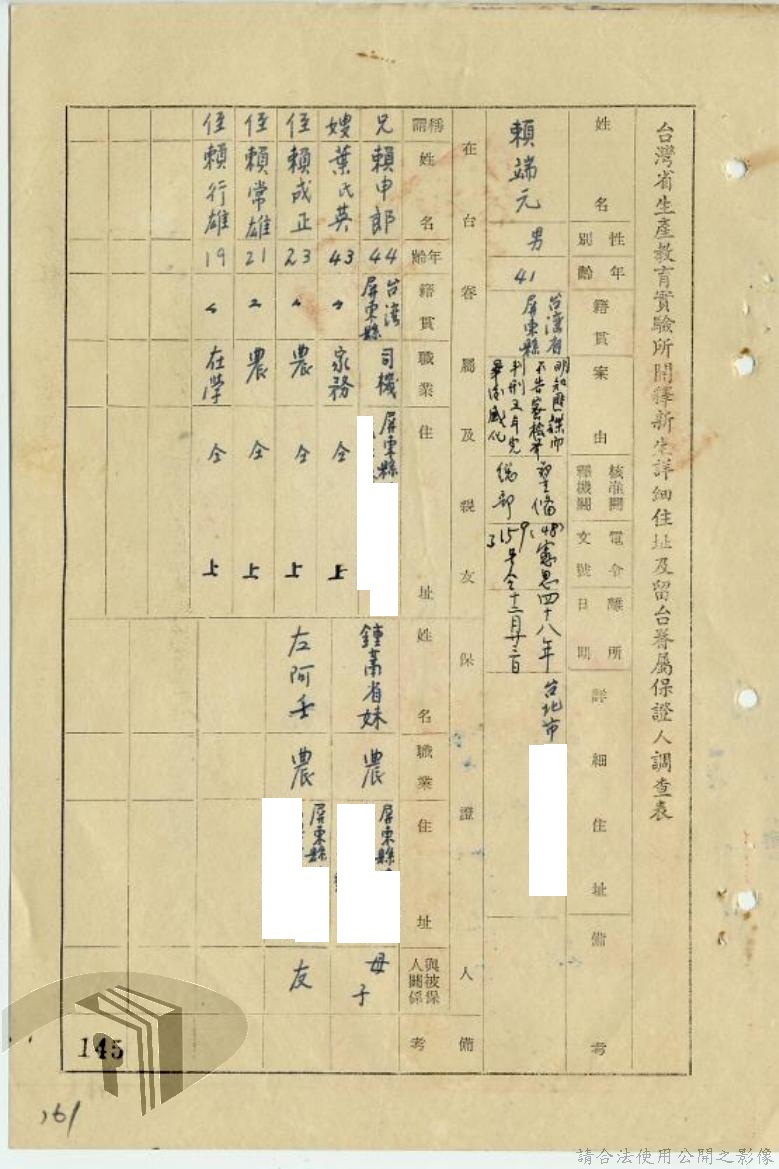 台灣省生產教育實驗所開釋新生詳細住址及留台眷屬保證人調查表
姓名
性別
年齡
籍貫
案由
核准開釋機關
電令文號
離所日期
詳細住址
備考
賴端元
男
41
台灣省屏東縣
明知匪諜而
不告密檢舉
判刑五年完
畢後感化
警備
總部
(48)憲恩
159號令
四十八年
十二月廿三日
台北市
在台眷屬及親友
保證人
備考
稱謂
姓名
年齡
籍貫
職業
住址
姓名
職業
住址
與被保人關係
兄
賴申郎
44
台灣屏東縣
司機
屏東縣
鍾蕭省妹
農
屏東縣
母子
嫂
葉氏英
43
〃
家務
仝上
侄
賴成正
23
〃
農
仝上
左阿壬
農
屏東縣
友
侄
賴常雄
21
〃
農
仝上
侄
賴行雄
19
〃
在學
仝上
145
161
請合法使用公開之影像